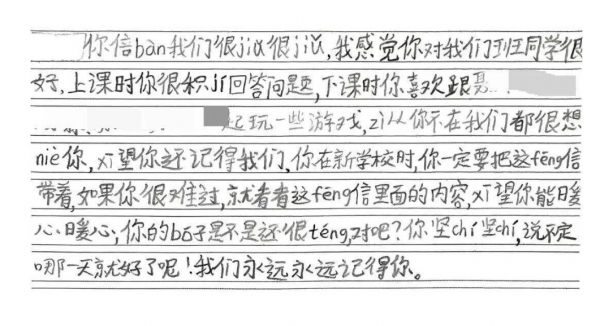 你信bān我们很jiǔ很jiǔ,我感觉你对我们班同学很
好,上课时你很积jí回答问题,下课时你喜欢跟
起玩一些游戏,zì从你不在我们都很想
niè你,xī望你还记得我们,你在新学校时,你一定要把这fēng信
带着,如果你很难过,就看看这fēng信里面的内容,xī望你能暖
心暖心,你的bó子是不是还很téng,对吧?你坚chí坚chí,说不定
哪一天就好了呢!我们永远永远记得你。